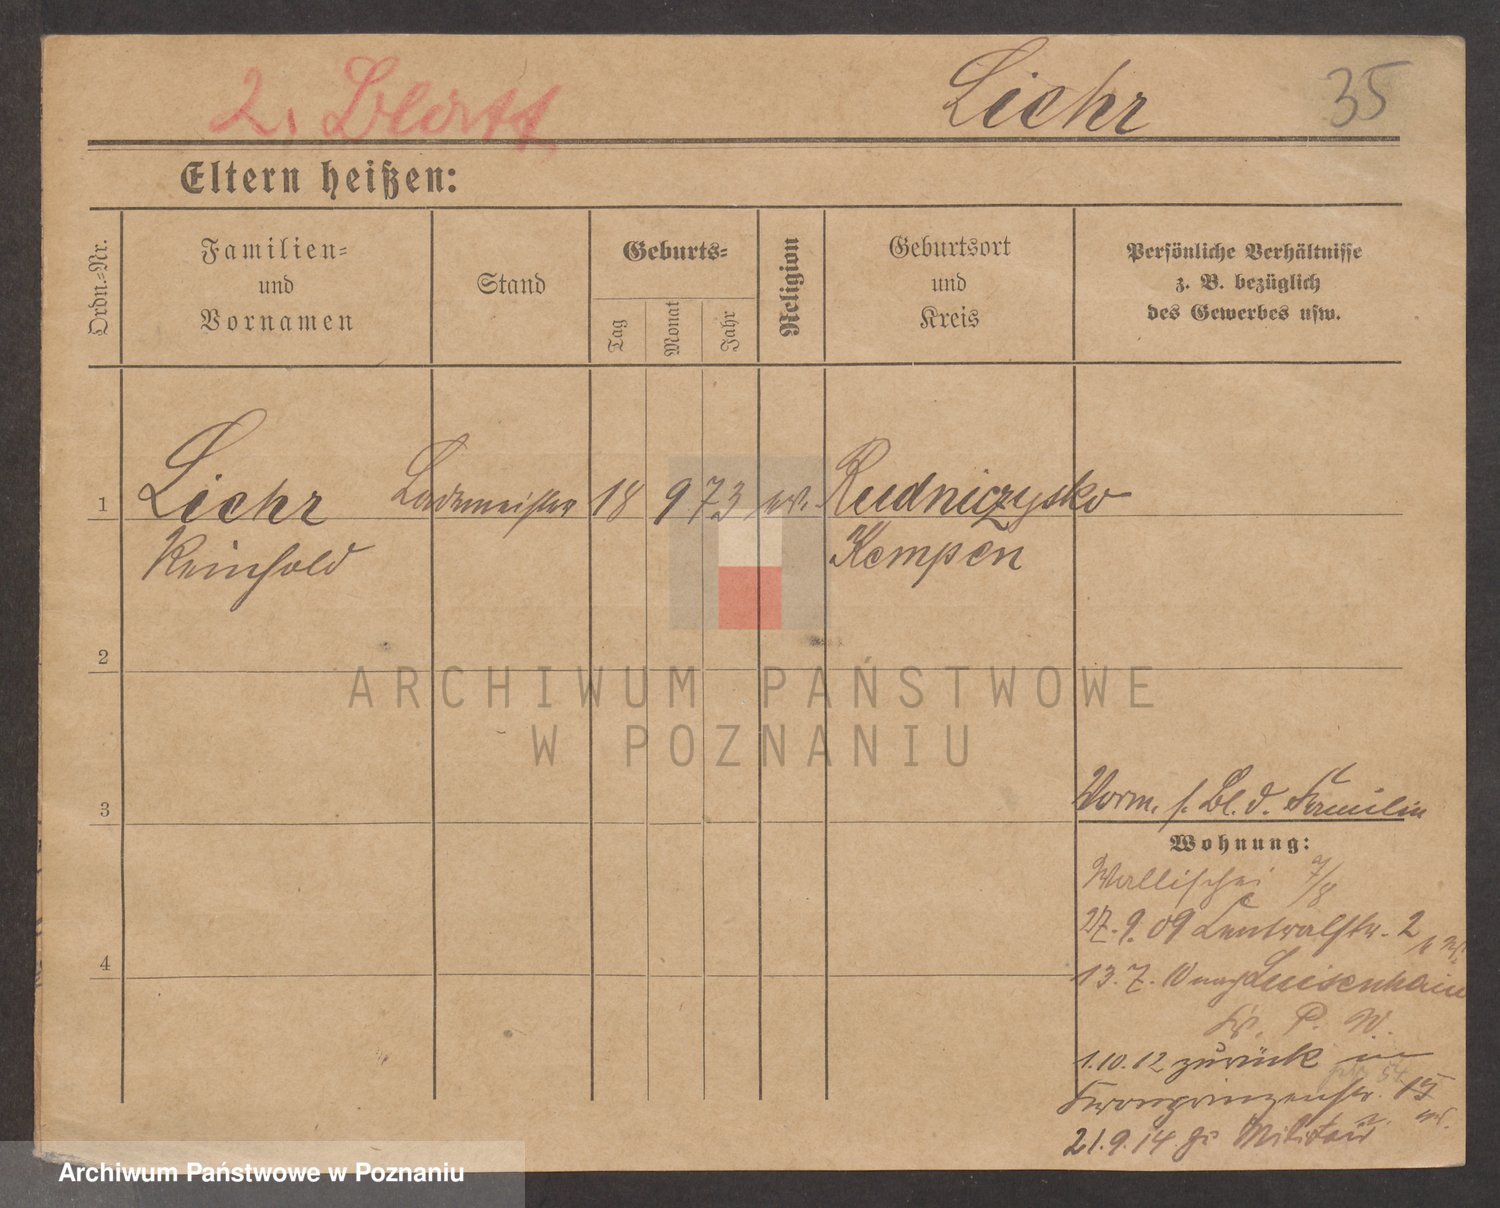 2. Blatt
Liehr
35
Eltern heißen:
Ordn.-Nr.
Familien-
und
Vornamen
Stand
Geburts-
Tag
Monat
Jahr
Religion
Geburtsort
und
Kreis
Persönliche Verhältnisse
z. B. bezüglich
des Gewerbes usw.
1 Liehr Lademeister 18 9 73 ev. Rudniczysko
Reinhold Kempen
2
ARCHIWUM PAŃSTWOWE
W POZNANIU
3
Vorm. s. Bl. d. Familie
Wohnung:
Wallischei 7/8
27.9.09 Centralstr. 2
4
13.7.10 nach Luisenhain
Kr. P. W.
1.10.12 zurück in
Kronprinzenstr. 15
21.9.14 zu Militair
Archiwum Państwowe w Poznaniu